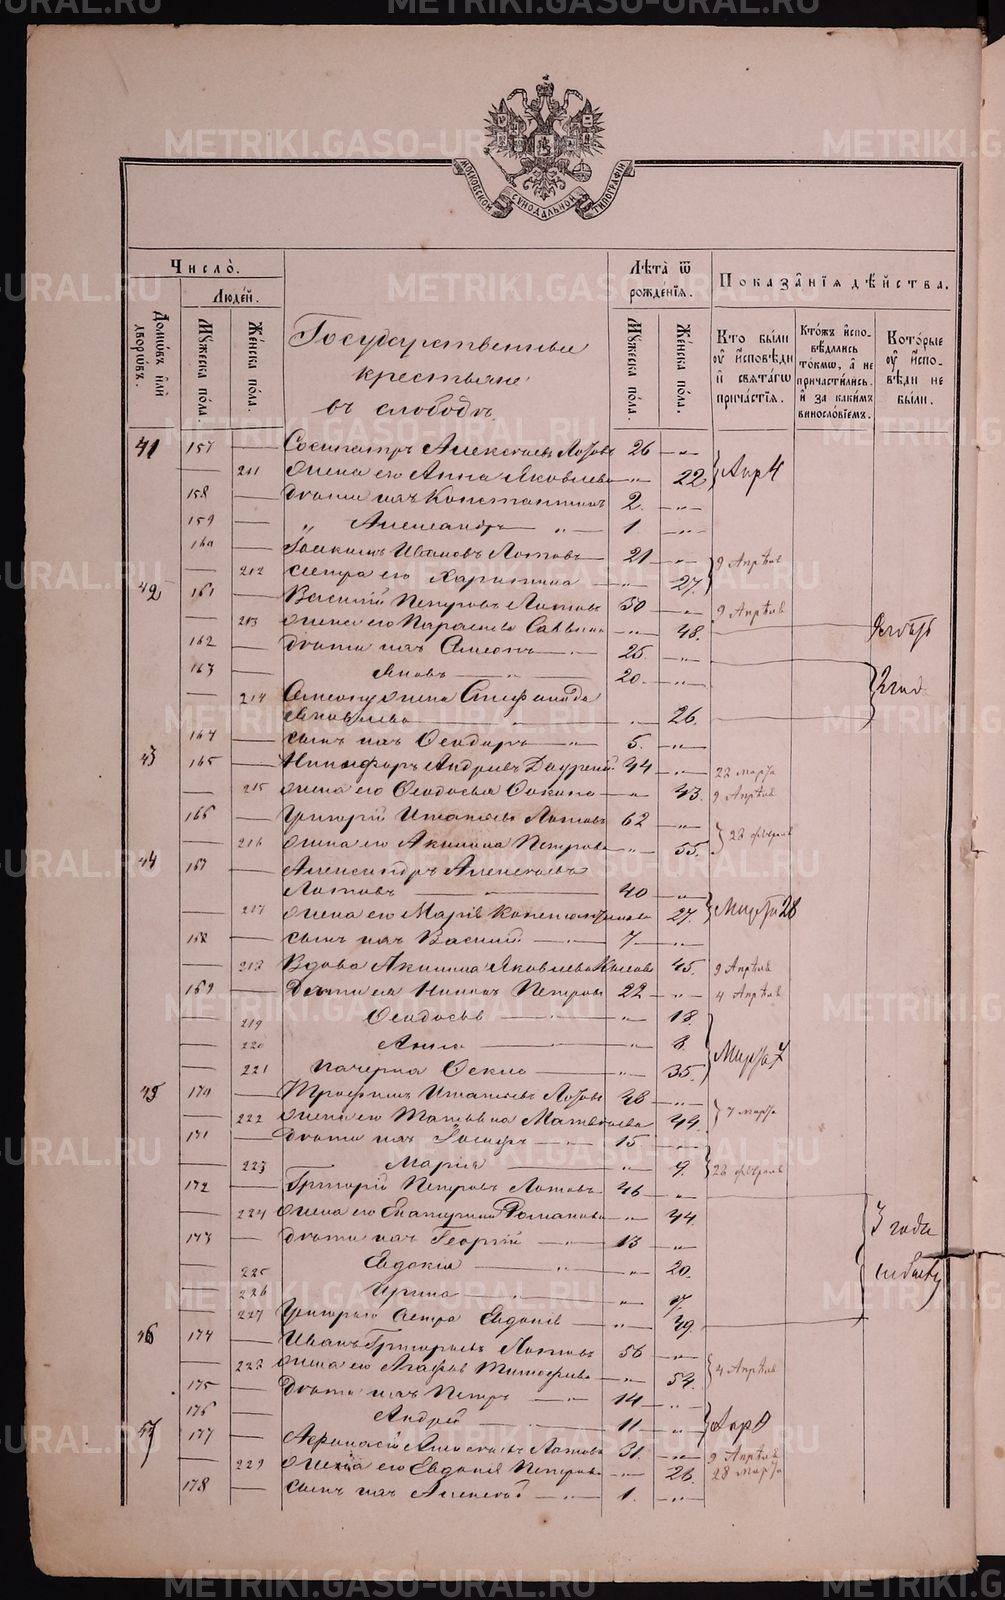 МОСКОВСКОЙ СУНОДАЛЬНОЙ ТИПОГРАФІИ
Число̀.
Людей.
Домѡвъ или дворѡвъ.
Мꙋжеска пола.
Женска пола.
Государственные
крестьяне
въ слободѣ
Лѣта ѿ рожденїѧ.
Мꙋжеска пола.
Женска пола.
Показанїѧ дѣйства.
Кто были оу исповѣди и свѧтагѡ причастїѧ.
Ктожъ исповѣдались токмѡ, а не причастились. и за какимъ винословїемъ.
Которые оу исповѣди не были.
41 157 — Сосипатръ Алексѣевъ Лотовъ 26 — „ —
— 211 жена его Анна Яковлева — „ — 22 Апр 4
158 — Дѣти ихъ Константинъ 2. — „ —
159 — „ Александръ — „ — 1 — „ —
160 — Іоакимъ Ивановъ Лотовъ 21 — „ — 9 Апрѣля
— 212 сестра его Харитина — „ — 27.
42 161 — Василій Петровъ Лотовъ 50 — „ — 9 Апрѣля
— 213 жена его Параскева Саввина — „ — 48.
162 — Дѣти ихъ Симеонъ — „ — 25. — „ —
163 — Яковъ — „ — 20. — „ — 2 год
— 214 Симеону жена Стефанида
Яковлева — „ — 26.
164 — сынъ ихъ Ѳеодоръ — „ — 5. — „ —
43 165 — Никифоръ Андреевъ 44 — „ — 22 марта
— 215 жена его Ѳеодосья — „ — 43. 9 Апрѣля
166 — Григорій Лотовъ 62 — „ — 28 февраля
— 216 жена его Акилина Петрова — „ — 55.
44 167 — Александръ Алексѣевъ
Лотовъ — „ — 40 — „ —
— 217 жена его Марія Константинова 27. Марта 28
168 — сынъ ихъ Василій — „ — 7 — „ —
— 218 Вдова Акилина Яковлева 45. 9 Апрѣля
169 — Дѣти ея Никонъ Петровъ 22 — „ — 4 Апрѣля
— 219 Ѳеодосья — „ — 18.
— 220 Анна — „ — 8. Марта 7
— 221 Ѳекла — „ — 35.
45 170 — Трофимъ Лотовъ 48 — „ — 7 марта
— 222 жена его Татьяна Матвѣева 44.
171 — Дѣти ихъ Іосифъ — „ — 15 — „ —
— 223 Марія — „ — 9. 28 февраля
172 — Григорій Петровъ Лотовъ 46 — „ —
— 224 жена его Екатерина Романова — „ — 44 3 года
173 — Дѣти ихъ Георгій — „ — 13 — „ —
— 225 Евдокія — „ — 20.
— 226 Ирина — „ — 7.
— 227 Григорью сестра Евдокія — „ — 39.
46 174 — Иванъ Григорьевъ Лотовъ 56 — „ — 4 Апрѣля
— 228 жена его Агафья Тимофеева — „ — 54.
175 — Дѣти ихъ Петръ — „ — 14 — „ —
176 — Андрей — „ — 11 — „ —
57 177 — Аѳанасій Алексѣевъ Лотовъ 31. — „ — 9 Апрѣля
— 229 жена его Евдокія Петрова — „ — 26. 28 марта
178 — сынъ ихъ Алексѣй — „ — 1. — „ —
METRIKI.GASO-URAL.RU